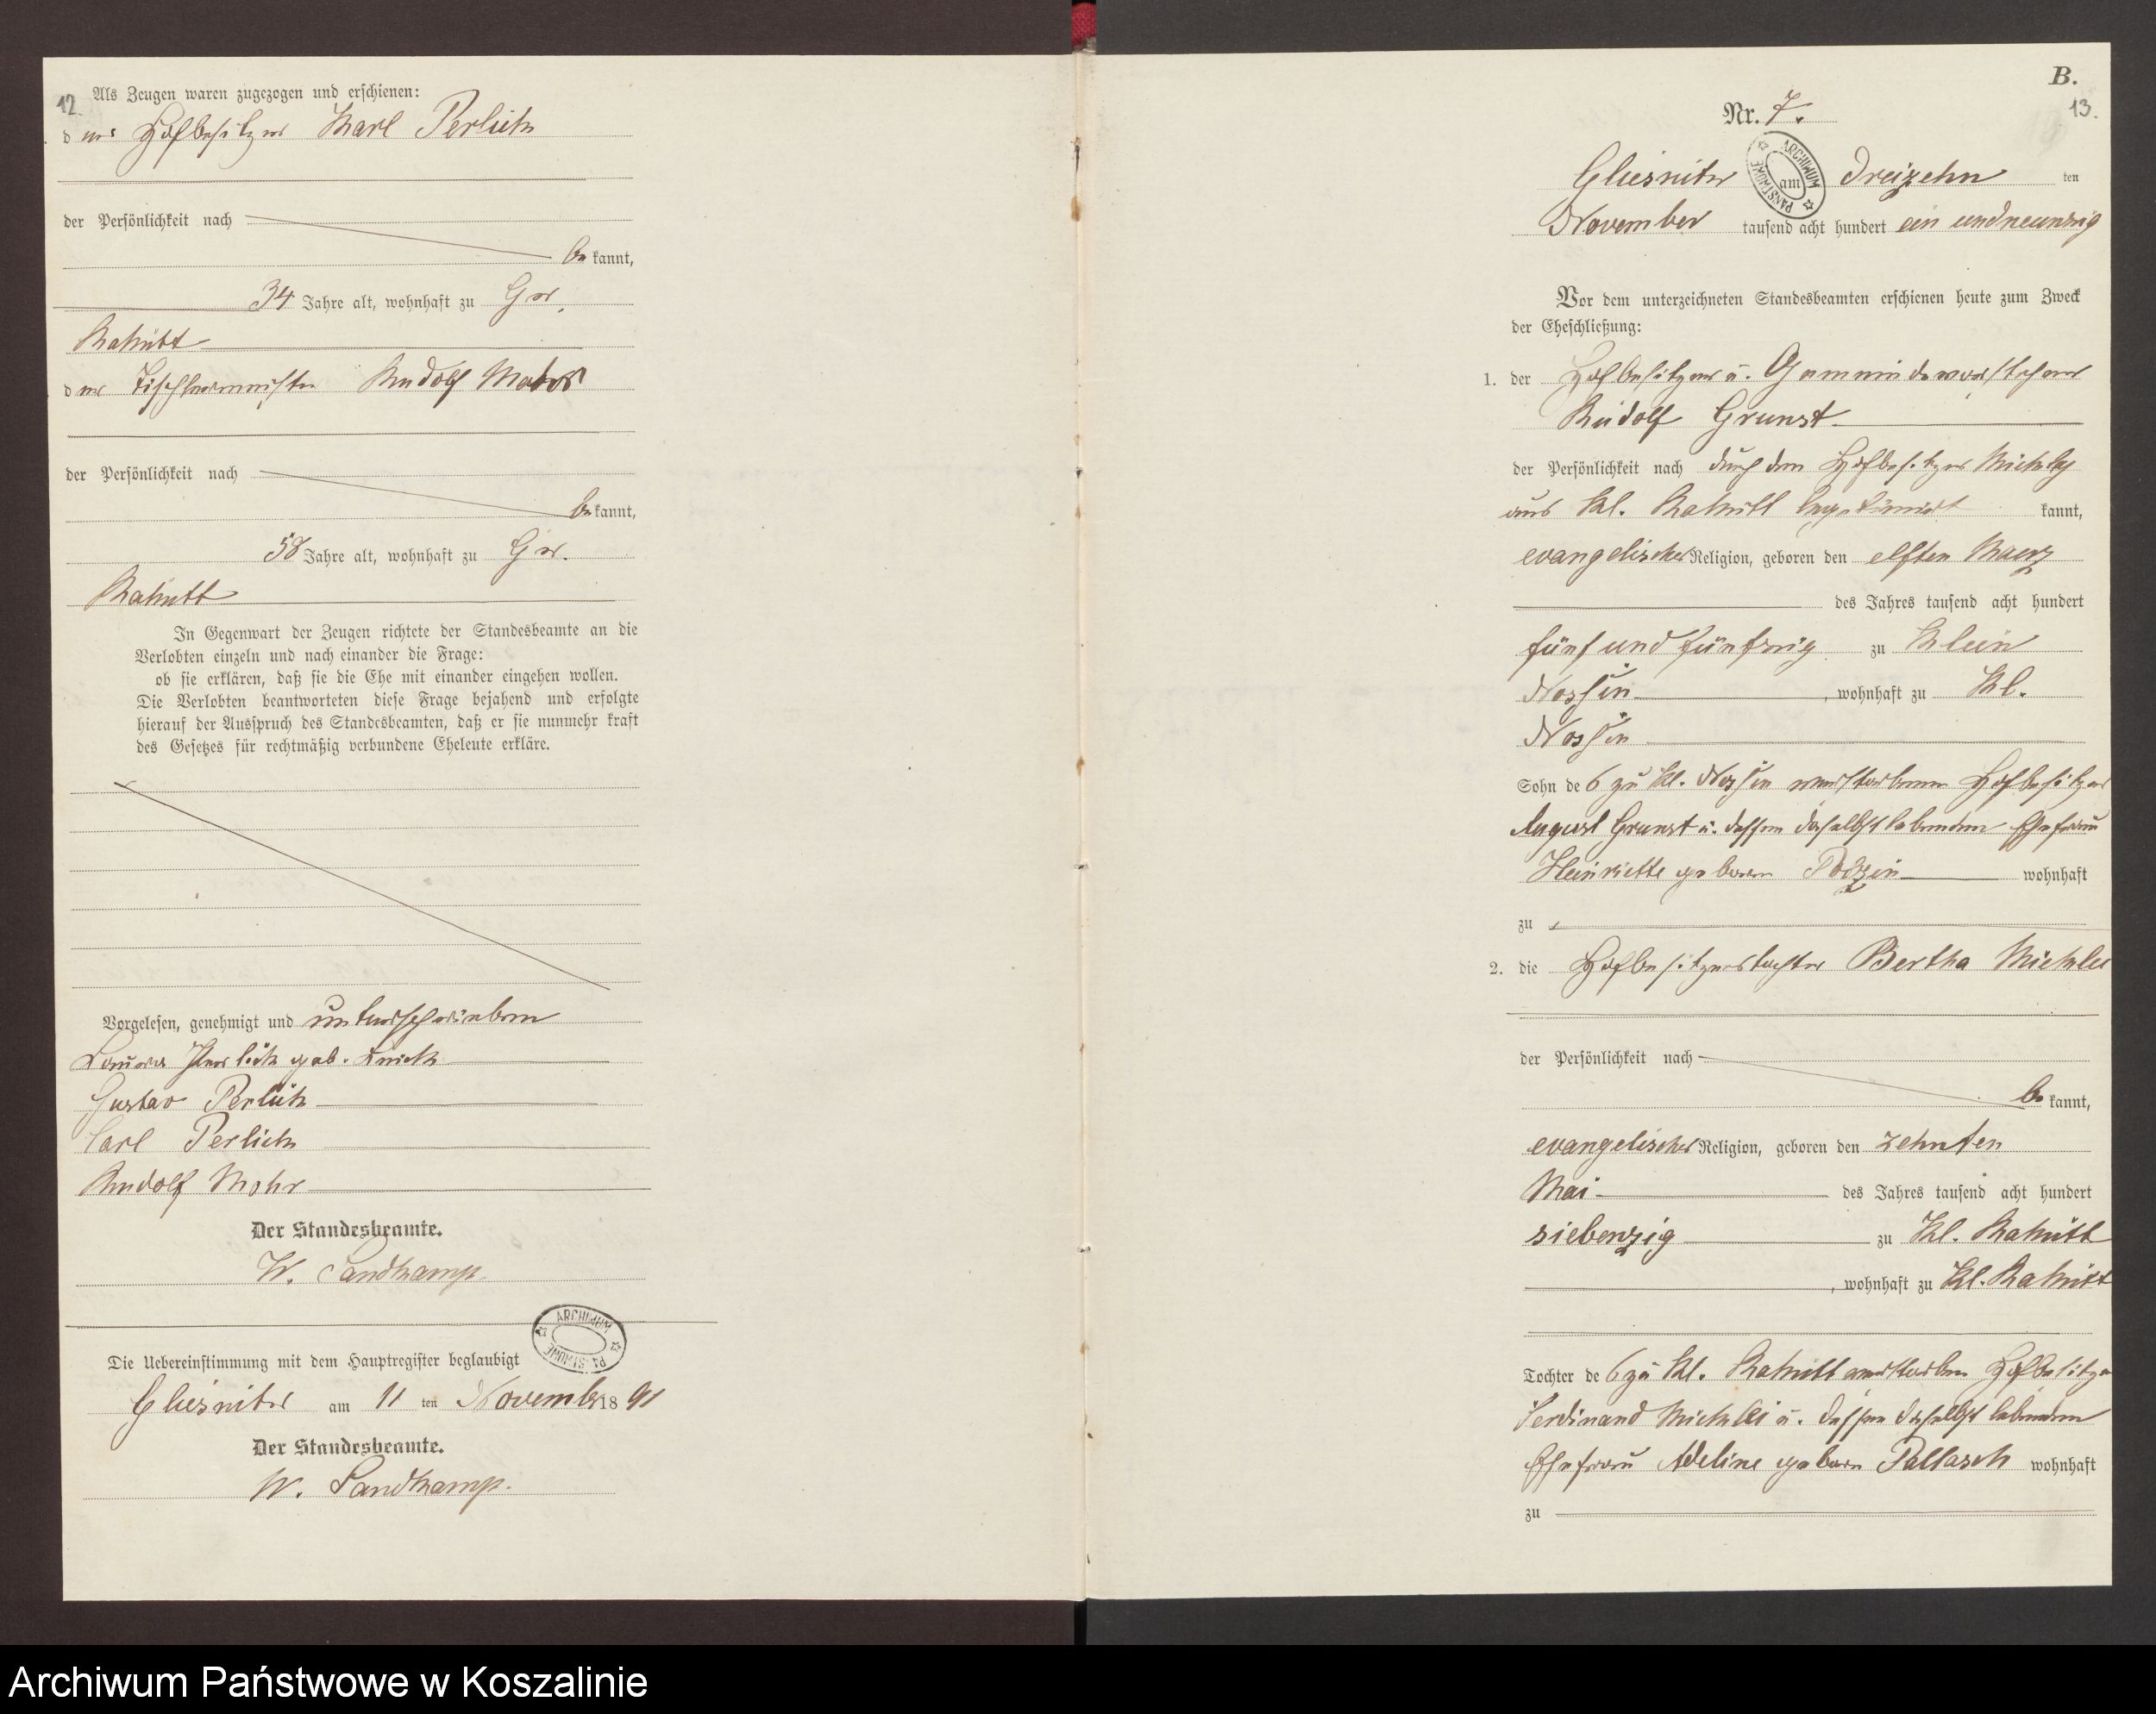 12.
Als Zeugen waren zugezogen und erschienen:
der Hofbesitzer Karl Perlick
der Persönlichkeit nach
be kannt,
34 Jahre alt, wohnhaft zu Gr.
Rakitt
der Tischlermeister Rudolf Mohr
der Persönlichkeit nach
be kannt,
58 Jahre alt, wohnhaft zu Gr.
Rakitt
In Gegenwart der Zeugen richtete der Standesbeamte an die
Verlobten einzeln und nach einander die Frage:
ob sie erklären, daß sie die Ehe mit einander eingehen wollen.
Die Verlobten beantworteten diese Frage bejahend und erfolgte
hierauf der Ausspruch des Standesbeamten, daß er sie nunmehr kraft
des Gesetzes für rechtmäßig verbundene Eheleute erkläre.
Vorgelesen, genehmigt und unterschrieben
Laura Perlick geb.
Gustav Perlick
Carl Perlick
Rudolf Mohr
Der Standesbeamte.
W. Sandkamp
ARCHIWUM PAŃSTWOWE
Die Uebereinstimmung mit dem Hauptregister beglaubigt
Gliesnitz am 11 ten November 18 91
Der Standesbeamte.
W. Sandkamp.
B.
13.
Nr. 7.
ARCHIWUM PAŃSTWOWE
Gliesnitz am dreizehn ten
November tausend acht hundert ein undneunzig
Vor dem unterzeichneten Standesbeamten erschienen heute zum Zweck
der Eheschließung:
1. der Hofbesitzer u. Gemeindevorsteher
Rudolf Grunst
der Persönlichkeit nach durch den Hofbesitzer Mickley
aus Kl. Rakitt legitimirt kannt,
evangelischer Religion, geboren den elften Maerz
des Jahres tausend acht hundert
fünf und fünfzig zu Klein
Nossin, wohnhaft zu Kl.
Nossin
Sohn des zu Kl. Nossin verstorbenen Hofbesitzer
August Grunst u. dessen daselbst lebenden Ehefrau
Heinriette geboren wohnhaft
zu
2. die Hofbesitzerstochter Bertha Micklei
der Persönlichkeit nach
be kannt,
evangelischer Religion, geboren den zehnten
Mai des Jahres tausend acht hundert
siebenzig zu Kl. Rakitt
, wohnhaft zu Kl. Rakitt
Tochter des zu Kl. Rakitt verstorben Hofbesitzer
Ferdinand Micklei u. dessen daselbst lebenden
Ehefrau Adeline geboren Pallasch wohnhaft
zu
Archiwum Państwowe w Koszalinie